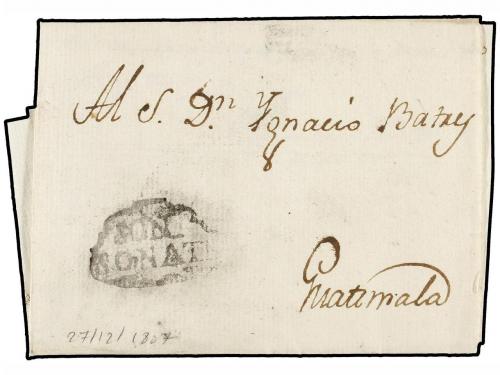 Al S. Dn Ygnacio Batres
8
SONAT
Guatemala
27/12/1807